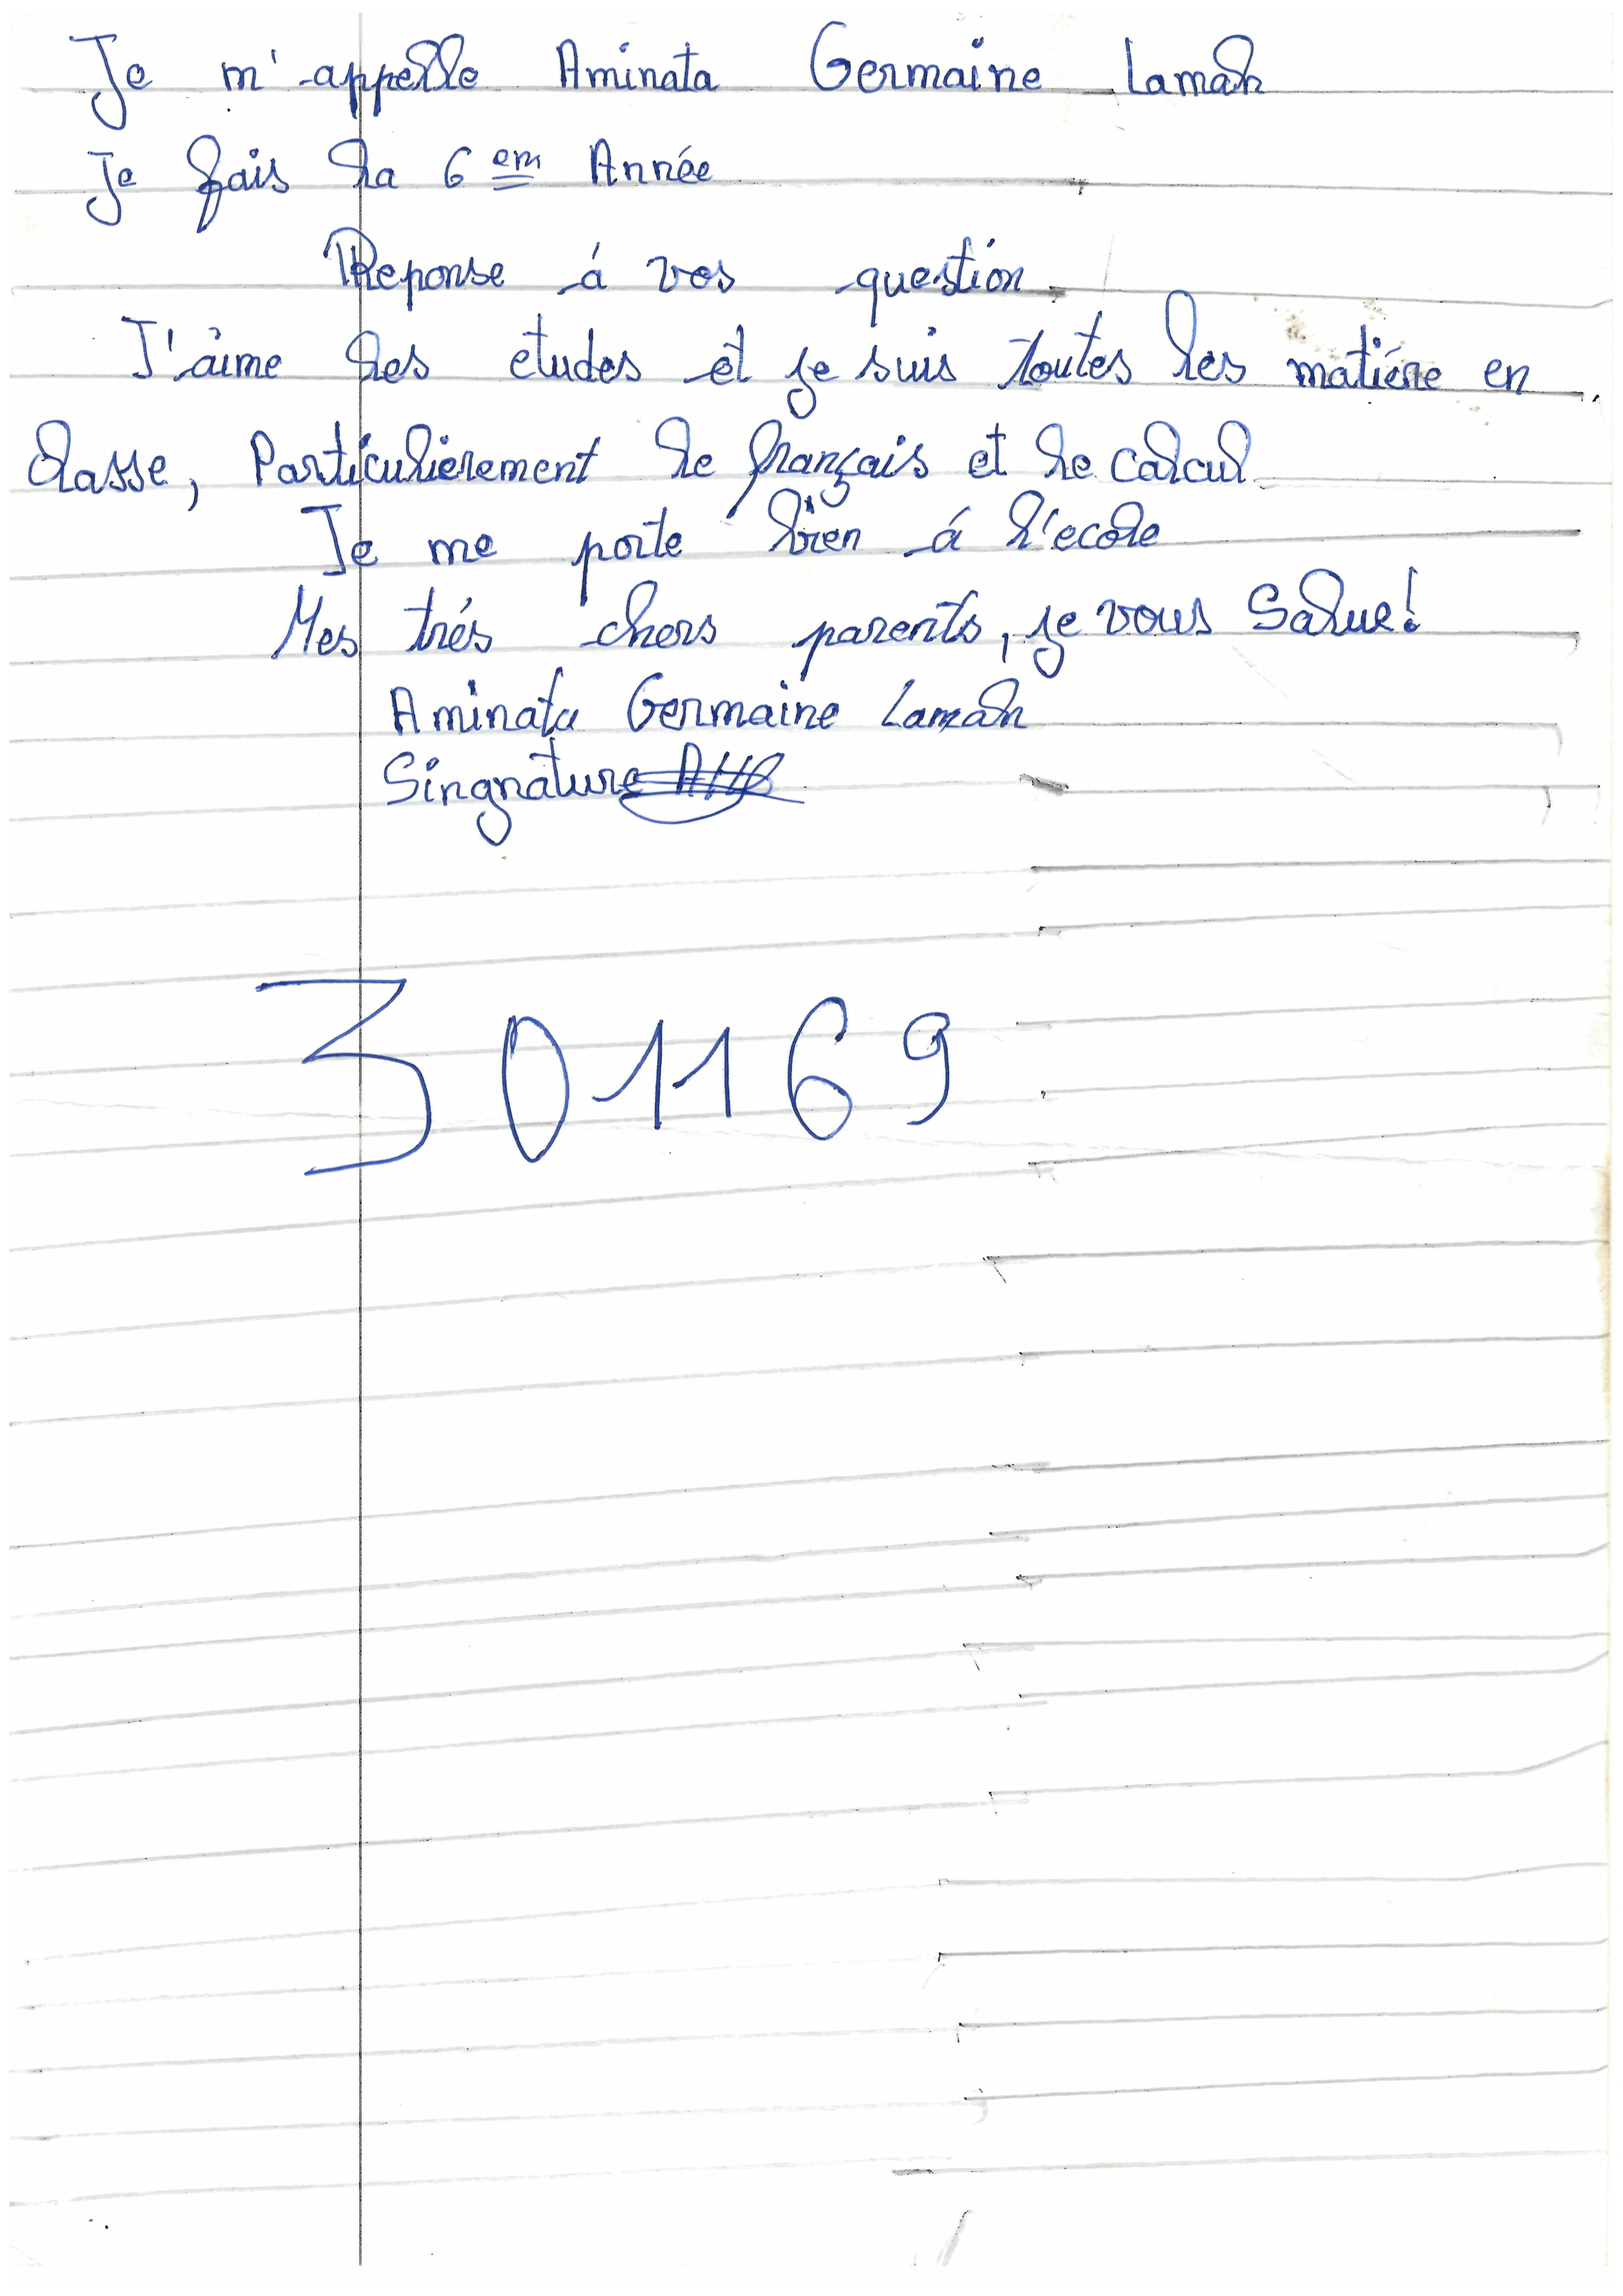 Je m'appelle Aminata Germaine Lamah
Je fais la 6 em Année
Reponse á vos question
J'aime les etudes et je suis toutes les matiére en
classe, Particulierement le français et le calcul
Je me porte bien á l'ecole
Mes trés chers parents, je vous Salue!
Aminata Germaine Lamah
Singnature
301169